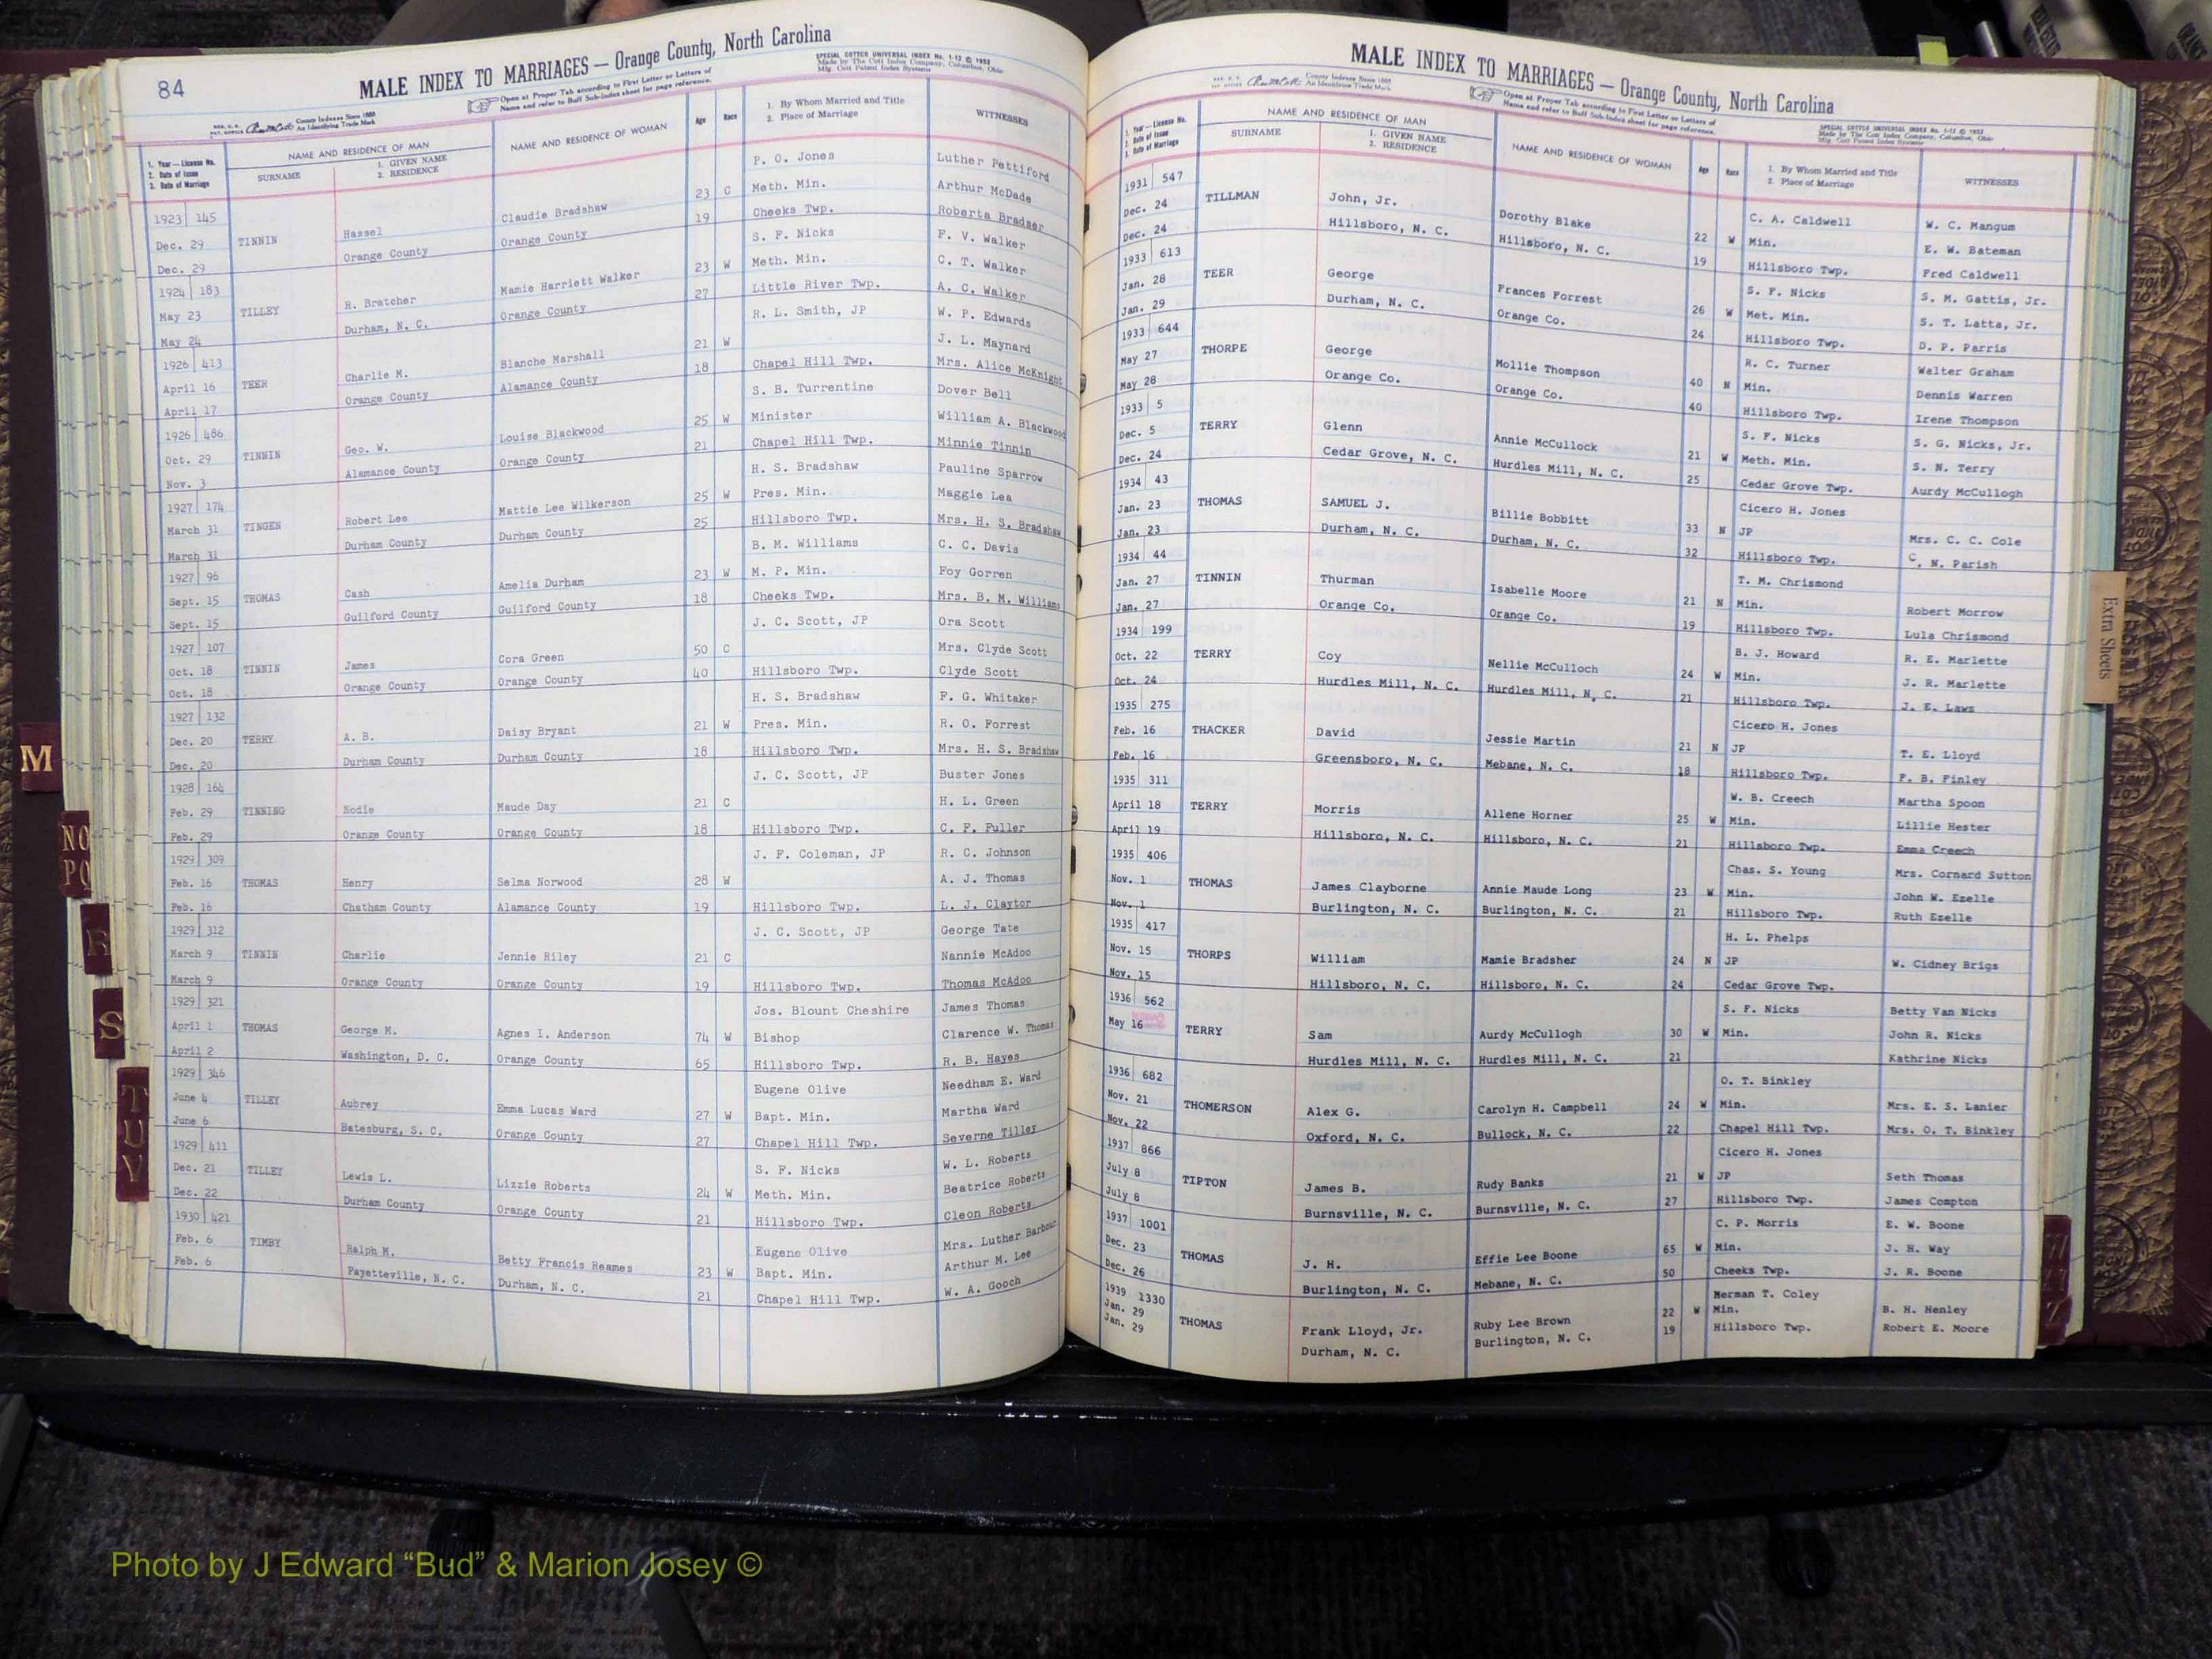 84
MALE INDEX TO MARRIAGES — Orange County, North Carolina
SPECIAL COTTCO UNIVERSAL INDEX No. 1-12 © 1952
Made by The Cott Index Company, Columbus, Ohio
Mfg. Cott Patent Index Systems
Open at Proper Tab according to First Letter or Letters of
Name and refer to Buff Sub-Index sheet for page reference.
County Indexes Since 1888
An Identifying Trade Mark
1. Year — License No.
2. Date of Issue
3. Date of Marriage
NAME AND RESIDENCE OF MAN
SURNAME
1. GIVEN NAME
2. RESIDENCE
NAME AND RESIDENCE OF WOMAN
Age
Race
1. By Whom Married and Title
2. Place of Marriage
WITNESSES
P. O. Jones Luther Pettiford
1923 145 TINNIN Hassel Claudie Bradshaw 23 C Meth. Min. Arthur McDade
Dec. 29 Orange County Orange County 19 Cheeks Twp. Roberta Bradser
Dec. 29
S. F. Nicks F. V. Walker
1924 183 TILLEY R. Bratcher Mamie Harriett Walker 23 W Meth. Min. C. T. Walker
May 23 Durham, N. C. Orange County 27 Little River Twp. A. C. Walker
May 24
R. L. Smith, JP W. P. Edwards
1926 413 TEER Charlie M. Blanche Marshall 21 W J. L. Maynard
April 16 Orange County Alamance County 18 Chapel Hill Twp. Mrs. Alice McKnight
April 17
S. B. Turrentine Dover Bell
1926 486 TINNIN Geo. W. Louise Blackwood 25 W Minister William A. Blackwood
Oct. 29 Alamance County Orange County 21 Chapel Hill Twp. Minnie Tinnin
Nov. 3
H. S. Bradshaw Pauline Sparrow
1927 174 TINGEN Robert Lee Mattie Lee Wilkerson 25 W Pres. Min. Maggie Lea
March 31 Durham County Durham County 25 Hillsboro Twp. Mrs. H. S. Bradshaw
March 31
B. M. Williams C. C. Davis
1927 96 THOMAS Cash Amelia Durham 23 W M. P. Min. Foy Gorren
Sept. 15 Guilford County Guilford County 18 Cheeks Twp. Mrs. B. M. Williams
Sept. 15
J. C. Scott, JP Ora Scott
1927 107 TINNIN James Cora Green 50 C Mrs. Clyde Scott
Oct. 18 Orange County Orange County 40 Hillsboro Twp. Clyde Scott
Oct. 18
H. S. Bradshaw F. G. Whitaker
1927 132 TERRY A. B. Daisy Bryant 21 W Pres. Min. R. O. Forrest
Dec. 20 Durham County Durham County 18 Hillsboro Twp. Mrs. H. S. Bradshaw
Dec. 20
J. C. Scott, JP Buster Jones
1928 164 TINNING Hodie Maude Day 21 C H. L. Green
Feb. 29 Orange County Orange County 18 Hillsboro Twp. C. P. Fuller
Feb. 29
J. F. Coleman, JP R. C. Johnson
1929 309 THOMAS Henry Selma Norwood 28 W A. J. Thomas
Feb. 16 Chatham County Alamance County 19 Hillsboro Twp. L. J. Claytor
Feb. 16
J. C. Scott, JP George Tate
1929 312 TINNIN Charlie Jennie Riley 21 C Nannie McAdoo
March 9 Orange County Orange County 19 Hillsboro Twp. Thomas McAdoo
March 9
Jos. Blount Cheshire James Thomas
1929 321 THOMAS George M. Agnes I. Anderson 74 W Bishop Clarence W. Thomas
April 1 Washington, D. C. Orange County 65 Hillsboro Twp. R. B. Hayes
April 2
Eugene Olive Needham E. Ward
1929 346 TILLEY Aubrey Emma Lucas Ward 27 W Bapt. Min. Martha Ward
June 4 Batesburg, S. C. Orange County 27 Chapel Hill Twp. Severne Tilley
June 6
S. F. Nicks W. L. Roberts
1929 411 TILLEY Lewis L. Lizzie Roberts 24 W Meth. Min. Beatrice Roberts
Dec. 21 Durham County Orange County 21 Hillsboro Twp. Cleon Roberts
Dec. 22
Eugene Olive Mrs. Luther Barbour
1930 421 TIMBY Ralph M. Betty Francis Reames 23 W Bapt. Min. Arthur M. Lee
Feb. 6 Fayetteville, N. C. Durham, N. C. 21 Chapel Hill Twp. W. A. Gooch
Feb. 6
M
NO
PQ
R
S
T
U
V
MALE INDEX TO MARRIAGES — Orange County, North Carolina
County Indexes Since 1888
An Identifying Trade Mark
Open at Proper Tab according to First Letter or Letters of
Name and refer to Buff Sub-Index sheet for page reference.
SPECIAL COTTCO UNIVERSAL INDEX No. 1-12 © 1952
Made by The Cott Index Company, Columbus, Ohio
Mfg. Cott Patent Index Systems
1. Year — License No.
2. Date of Issue
3. Date of Marriage
NAME AND RESIDENCE OF MAN
SURNAME
1. GIVEN NAME
2. RESIDENCE
NAME AND RESIDENCE OF WOMAN
Age
Race
1. By Whom Married and Title
2. Place of Marriage
WITNESSES
1931 547 C. A. Caldwell W. C. Mangum
Dec. 24 TILLMAN John, Jr. Dorothy Blake 22 W Min. E. W. Bateman
Dec. 24 Hillsboro, N. C. Hillsboro, N. C. 19 Hillsboro Twp. Fred Caldwell
1933 613 S. F. Nicks S. M. Gattis, Jr.
Jan. 28 TEER George Frances Forrest 26 W Met. Min. S. T. Latta, Jr.
Jan. 29 Durham, N. C. Orange Co. 24 Hillsboro Twp. D. P. Parris
1933 644 R. C. Turner Walter Graham
May 27 THORPE George Mollie Thompson 40 N Min. Dennis Warren
May 28 Orange Co. Orange Co. 40 Hillsboro Twp. Irene Thompson
1933 5 S. F. Nicks S. G. Nicks, Jr.
Dec. 5 TERRY Glenn Annie McCullock 21 W Meth. Min. S. N. Terry
Dec. 24 Cedar Grove, N. C. Hurdles Mill, N. C. 25 Cedar Grove Twp. Aurdy McCullogh
1934 43 Cicero H. Jones
Jan. 23 THOMAS SAMUEL J. Billie Bobbitt 33 N JP Mrs. C. C. Cole
Jan. 23 Durham, N. C. Durham, N. C. 32 Hillsboro Twp. C. N. Parish
1934 44 T. M. Chrismond
Jan. 27 TINNIN Thurman Isabelle Moore 21 N Min. Robert Morrow
Jan. 27 Orange Co. Orange Co. 19 Hillsboro Twp. Lula Chrismond
1934 199 B. J. Howard R. E. Marlette
Oct. 22 TERRY Coy Nellie McCulloch 24 W Min. J. R. Marlette
Oct. 24 Hurdles Mill, N. C. Hurdles Mill, N. C. 21 Hillsboro Twp. J. E. Laws
1935 275 Cicero H. Jones
Feb. 16 THACKER David Jessie Martin 21 N JP T. E. Lloyd
Feb. 16 Greensboro, N. C. Mebane, N. C. 18 Hillsboro Twp. F. B. Finley
1935 311 W. B. Creech Martha Spoon
April 18 TERRY Morris Allene Horner 25 W Min. Lillie Hester
April 19 Hillsboro, N. C. Hillsboro, N. C. 21 Hillsboro Twp. Emma Creech
1935 406 Chas. S. Young Mrs. Cornard Sutton
Nov. 1 THOMAS James Clayborne Annie Maude Long 23 W Min. John W. Ezelle
Nov. 1 Burlington, N. C. Burlington, N. C. 21 Hillsboro Twp. Ruth Ezelle
1935 417 H. L. Phelps
Nov. 15 THORPS William Mamie Bradsher 24 N JP W. Cidney Brigs
Nov. 15 Hillsboro, N. C. Hillsboro, N. C. 24 Cedar Grove Twp.
1936 562 S. F. Nicks Betty Van Nicks
May 16 TERRY Sam Aurdy McCullogh 30 W Min. John R. Nicks
Hurdles Mill, N. C. Hurdles Mill, N. C. 21 Kathrine Nicks
1936 682 O. T. Binkley
Nov. 21 THOMERSON Alex G. Carolyn H. Campbell 24 W Min. Mrs. E. S. Lanier
Nov. 22 Oxford, N. C. Bullock, N. C. 22 Chapel Hill Twp. Mrs. O. T. Binkley
1937 866 Cicero H. Jones
July 8 TIPTON James B. Rudy Banks 21 W JP Seth Thomas
July 8 Burnsville, N. C. Burnsville, N. C. 27 Hillsboro Twp. James Compton
1937 1001 C. P. Morris E. W. Boone
Dec. 23 THOMAS J. H. Effie Lee Boone 65 W Min. J. H. Way
Dec. 26 Burlington, N. C. Mebane, N. C. 50 Cheeks Twp. J. R. Boone
1939 1330 Herman T. Coley
Jan. 29 THOMAS Frank Lloyd, Jr. Ruby Lee Brown 22 W Min. B. H. Henley
Jan. 29 Durham, N. C. Burlington, N. C. 19 Hillsboro Twp. Robert E. Moore
Extra Sheets
Photo by J Edward “Bud” & Marion Josey ©